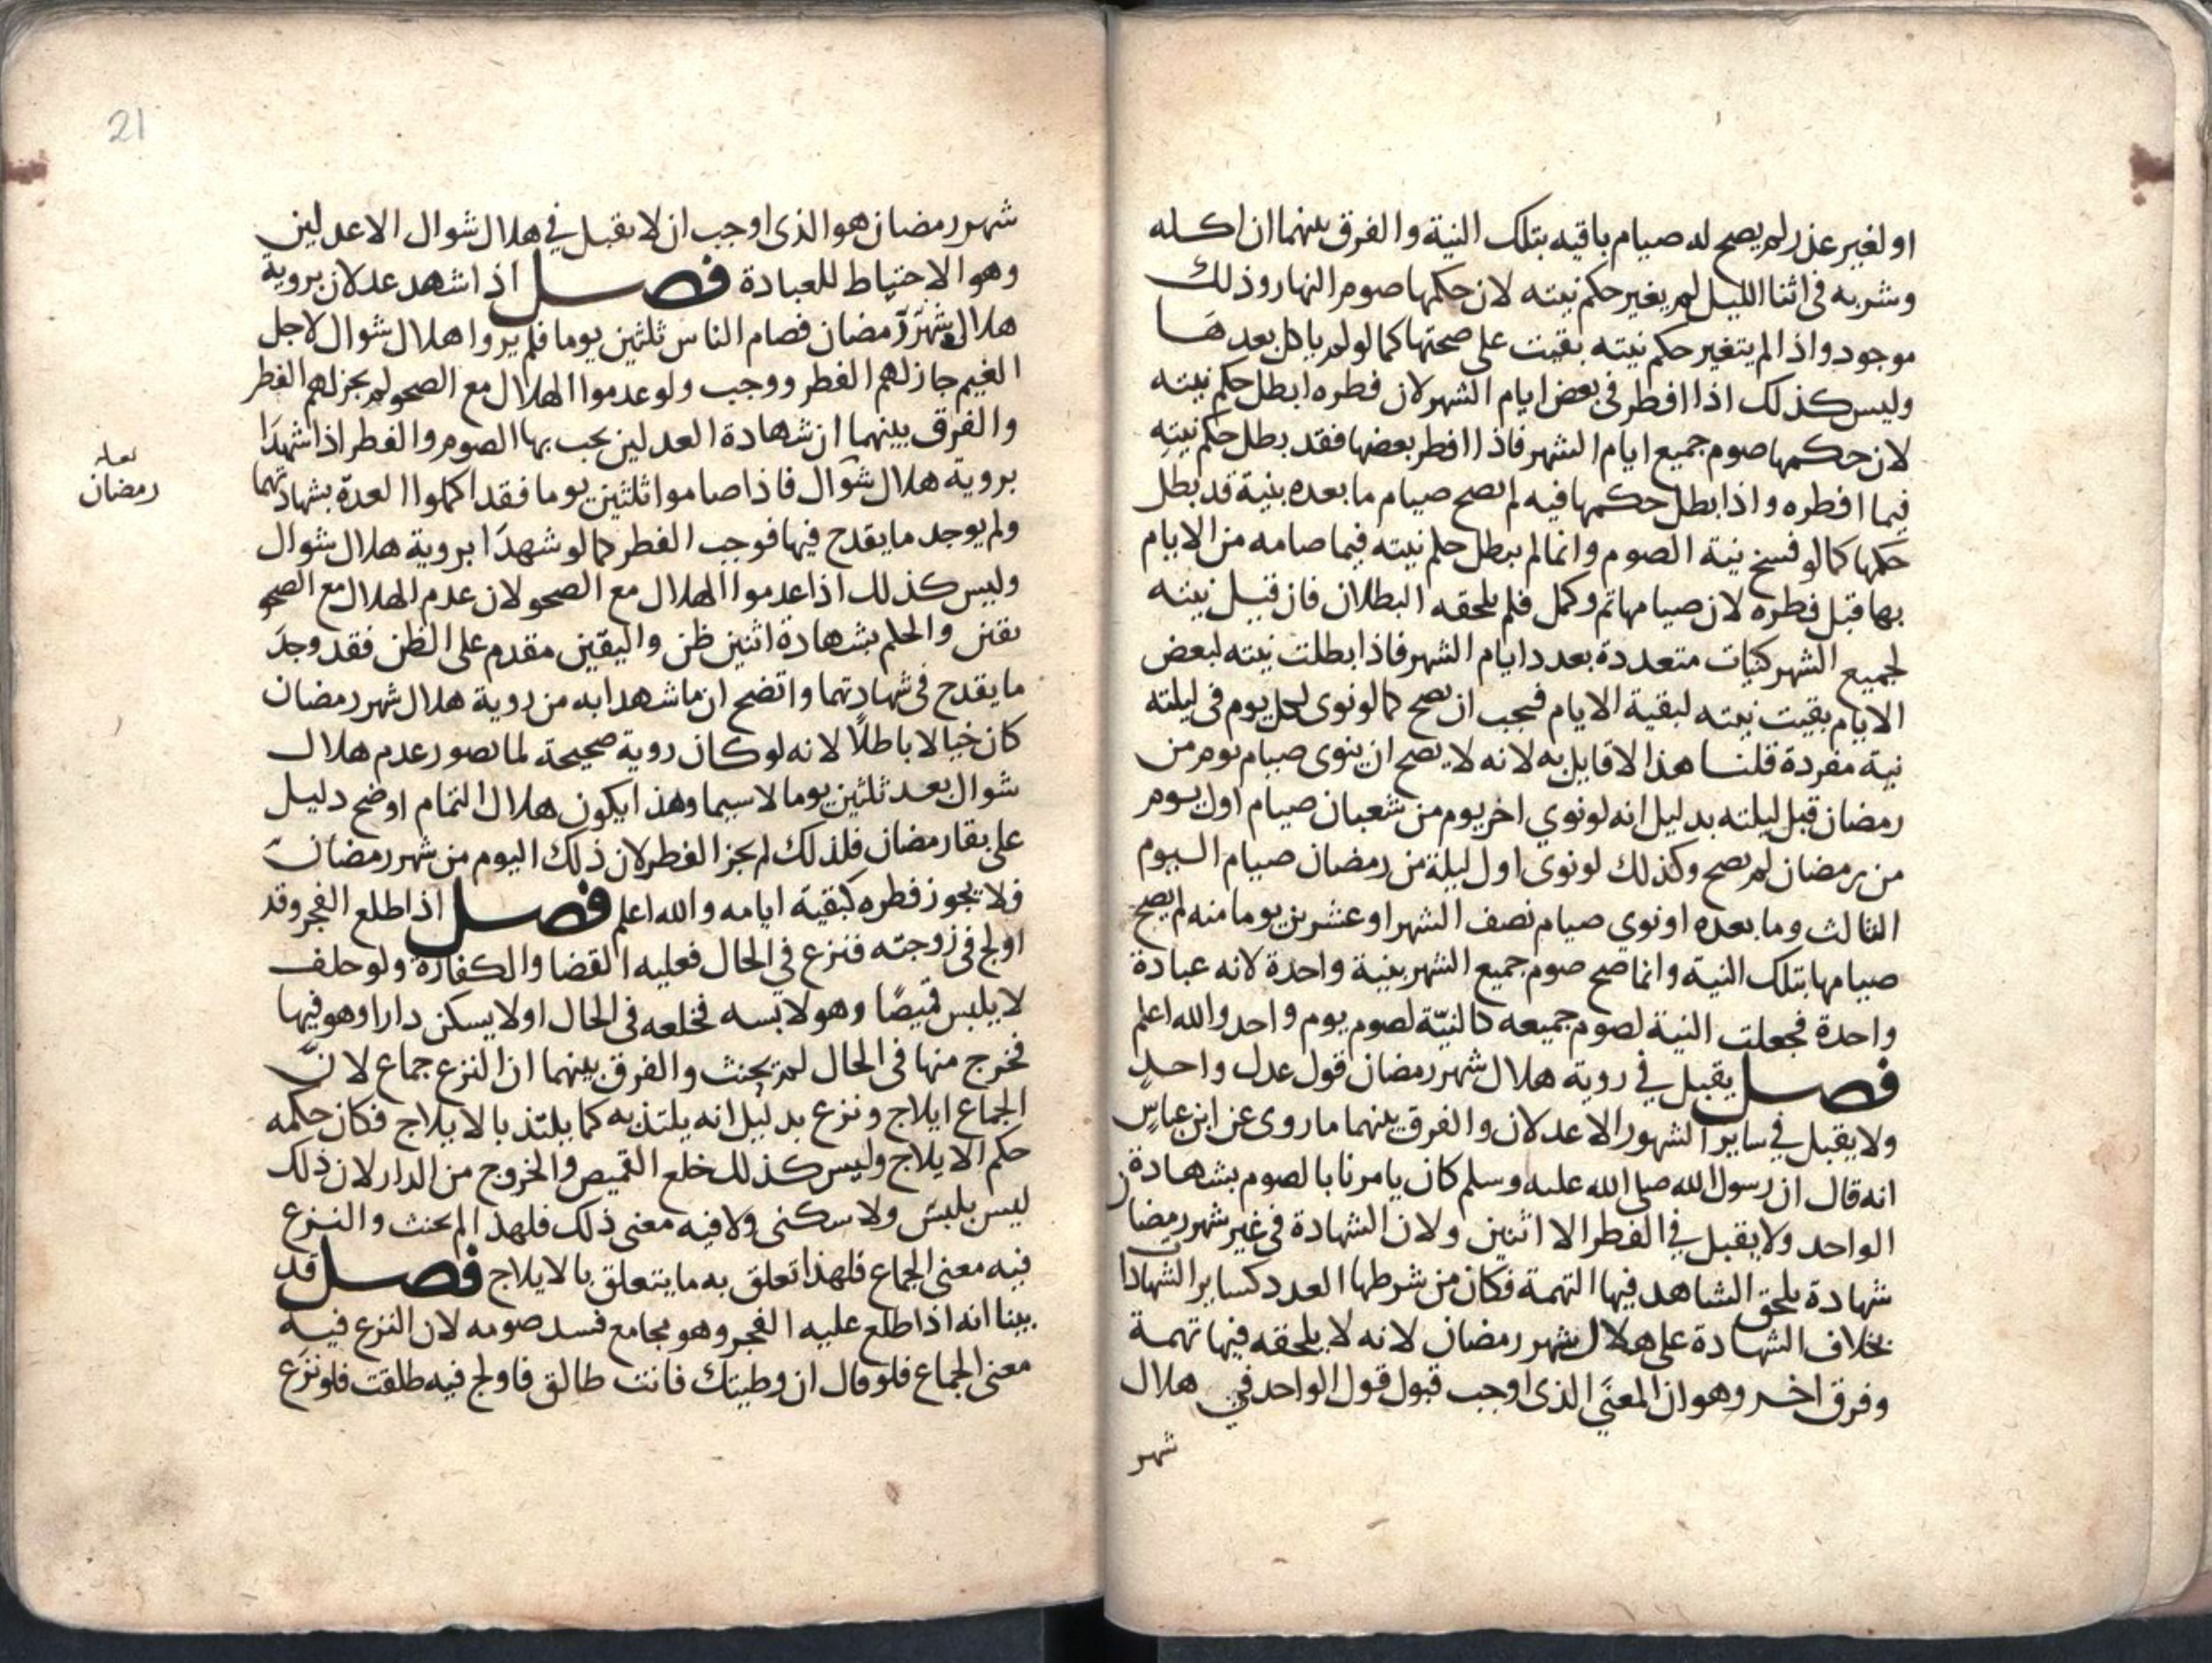 او لغير عذر لم يصح له صيام باقيه بتلك النية والفرق بينهما ان اكله
وشربه في اثنا الليل لم يغير حكم نيته لان حكمها صوم النهار وذلك
موجود واذا لم يتغير حكم نيته بقيت على صحتها كما لو لم ياكل بعدها
وليس كذلك اذا افطر في بعض ايام الشهر لان فطره ابطل حكم نيته
لان حكمها صوم جميع ايام الشهر فاذا افطر بعضها فقد بطل حكم نيته
فيما افطره واذا بطل حكمها فيه لم يصح صيام ما بعده بنية قد بطل
حكمها كما لو فسخ نية الصوم وانما لم يبطل حكم نيته فيما صامه من الايام
بها قبل فطره لان صيامها تم وكمل فلم يلحقه البطلان فان قيل نيته
لجميع الشهر كنيات متعددة بعدد ايام الشهر فاذا بطلت نيته لبعض
الايام بقيت نيته لبقية الايام فيجب ان يصح كما لو نوى لكل يوم في ليلته
نية مفردة قلنا هذا لا قايل به لانه لا يصح ان ينوى صيام يوم من
رمضان قبل ليلته بدليل انه لو نوي اخر يوم من شعبان صيام اول يوم
من رمضان لم يصح وكذلك لو نوى اول ليلة من رمضان صيام اليوم
الثالث وما بعده او نوي صيام نصف الشهر او عشرين يوما منه لم يصح
صيامها بتلك النية وانما صح صوم جميع الشهر بنية واحدة لانه عبادة
واحدة فجعلت النية لصوم جميعه كالنيّة لصوم يوم واحد والله اعلم
فصل يقبل في روية هلال شهر رمضان قول عدل واحد
ولا يقبل في ساير الشهور الا عدلان والفرق بينهما ما روى عن ابن عباسٍ
انه قال ان رسول الله صلى الله عليه وسلم كان يامرنا بالصوم بشهادة
الواحد ولا يقبل في الفطر الا اثنين ولان الشهادة في غير شهر رمضان
شهادة يلحق الشاهد فيها التهمة فكان من شرطها العدد كساير الشهادات
بخلاف الشهادة على هلال شهر رمضان لانه لا يلحقه فيها تهمة
وفرق اخر وهو ان المعنَي الذى اوجب قبول قول الواحد في هلال
شهر
21
شهر رمضان هو الذى اوجب ان لا يقبل في هلال شوال الا عدلين
وهو الاحتياط للعبادة فصل اذا شهد عدلان بروية
هلال شهر رمضان فصام الناس ثلثين يوما فلم يروا هلال شوال لاجل
الغيم جاز لهم الفطر ووجب ولو عدموا الهلال مع الصحو لم يجز لهم الفطر
والفرق بينهما ان شهادة العدلين يجب بها الصوم والفطر اذا شهدَا
بروية هلال شوال فاذا صاموا ثلثين يوما فقد اكملوا العدة بشهادتهما
لعله
رمضان
ولم يوجد ما يقدح فيها فوجب الفطر كما لو شهدَا بروية هلال شوال
وليس كذلك اذا عدموا الهلال مع الصحو لان عدم الهلال مع الصحو
يقين والحكم بشهادة اثنين ظن واليقين مقدم على الظن فقد وجدَ
ما يقدح في شهادتهما واتضح ان ما شهدا به من روية هلال شهر رمضان
كان خيالا باطلًا لانه لو كان روية صحيحة لما تصور عدم هلال
شوال بعد ثلثين يوما لا سيما وهذا يكون هلال التمام اوضح دليل
على بقا رمضان فلذلك لم يجز الفطر لان ذلك اليوم من شهر رمضان
فلا يجوز فطره كبقية ايامه والله اعلم فصل اذا طلع الفجر وقد
اولج في زوجته فنزع في الحال فعليه القضا والكفارة ولو حلف
لا يلبس قميصًا وهو لابسه فخلعه في الحال او لا يسكن دارا وهو فيها
فخرج منها في الحال لم يحنث والفرق بينهما ان النزع جماع لانّ
الجماع ايلاج ونزع بدليل انه يلتذ به كما يلتذ بالايلاج فكان حكمه
حكم الايلاج وليس كذلك خلع القميص والخروج من الدار لان ذلك
ليس بلبس ولا سكنى ولا فيه معنى ذلك فلهذا لم يحنث والنزع
فيه معنى الجماع فلهذا تعلق به ما يتعلق بالايلاج فصل قد
بينا انه اذا طلع عليه الفجر وهو مجامع فسد صومه لان النزع فيه
معنى الجماع فلو قال ان وطيتك فانت طالق فاولج فيه طلقت فلو نزع